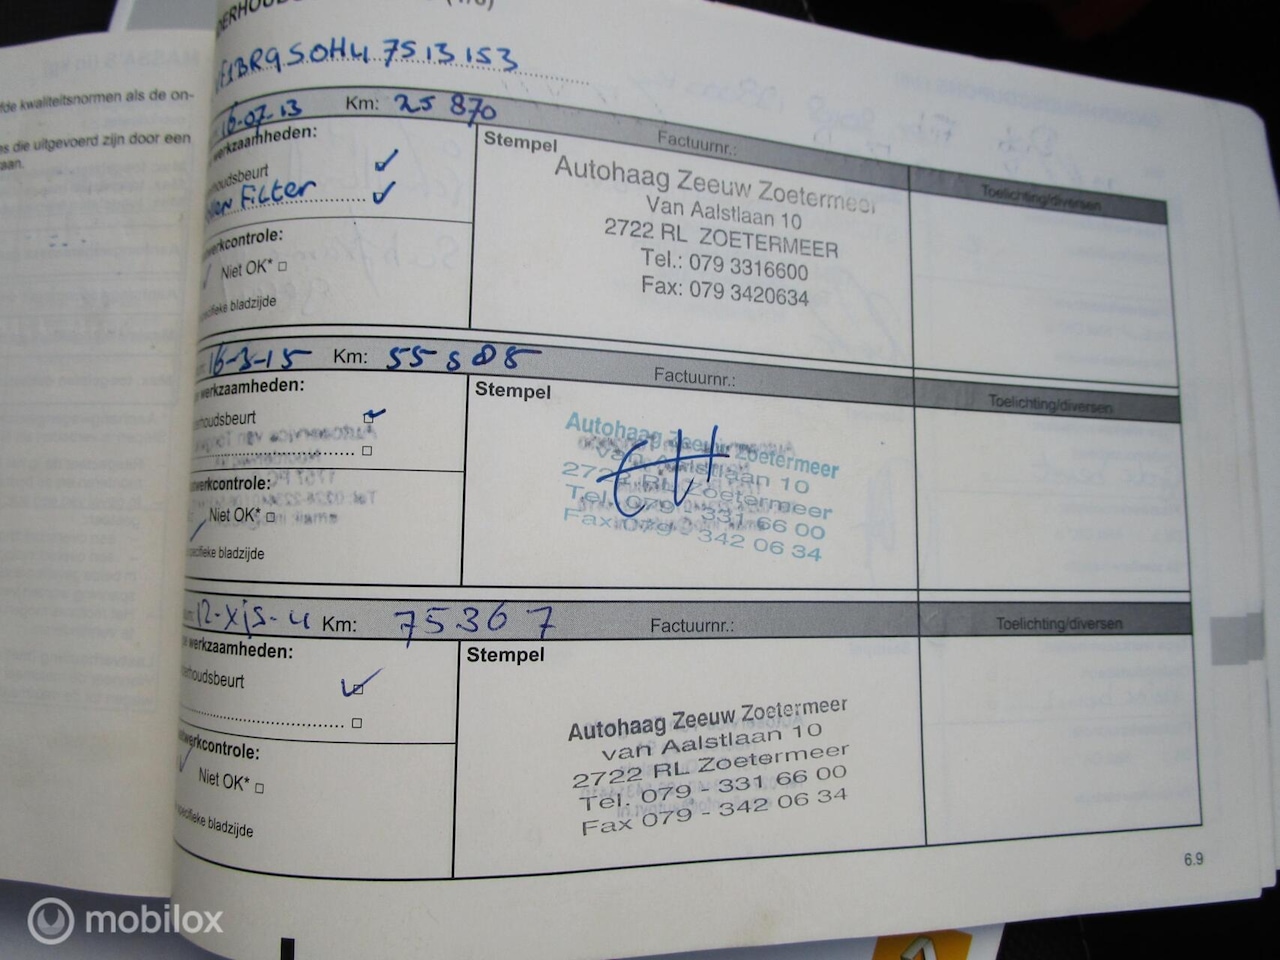 (1/6)
F1BRG5OH4 7513153
fde kwaliteitsnormen als de on-
die uitgevoerd zijn door een
16-07-13 Km: 25 870
werkzaamheden:
Stempel
Factuurnr.:
Toelichting/diversen
Filter
werkcontrole:
Niet OK*
bladzijde
Autohaag Zeeuw Zoetermeer
Van Aalstlaan 10
2722 RL ZOETERMEER
Tel.: 079 3316600
Fax: 079 3420634
16-3-15 Km:
werkzaamheden:
Stempel
Factuurnr.:
Toelichting/diversen
houdsbeurt
werkcontrole:
Niet OK*
specifieke bladzijde
Autohaag Zeeuw Zoetermeer
van Aalstlaan 10
2722 RL Zoetermeer
Tel. 079 - 331 66 00
Fax 079 - 342 06 34
Km: 75367
werkzaamheden:
Stempel
Factuurnr.:
Toelichting/diversen
houdsbeurt
werkcontrole:
Niet OK*
specifieke bladzijde
Autohaag Zeeuw Zoetermeer
van Aalstlaan 10
2722 RL Zoetermeer
Tel. 079 - 331 66 00
Fax 079 - 342 06 34
6.9
mobilox